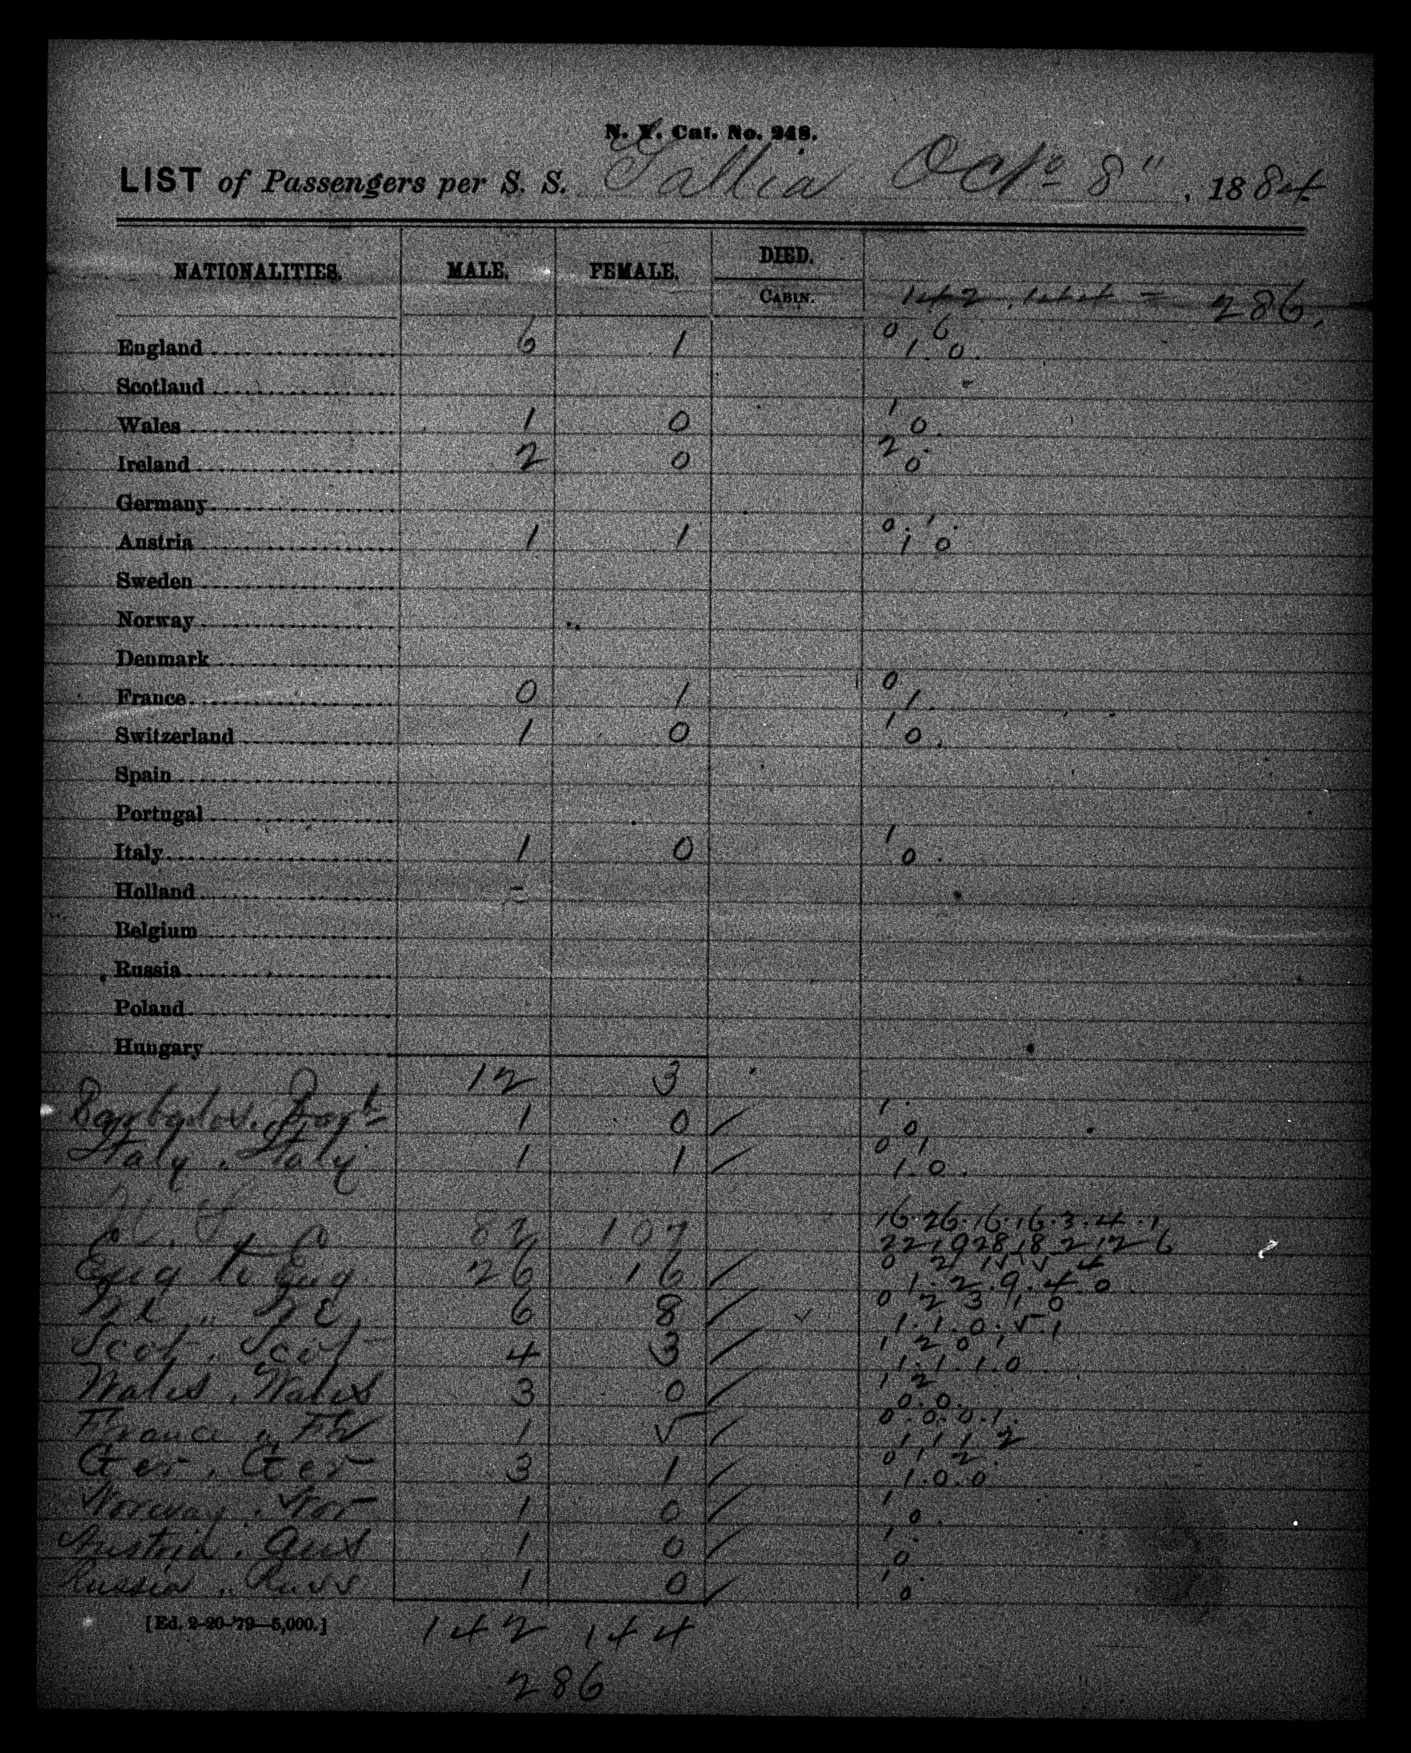 N. Y. Cat. No. 248.
LIST of Passengers per S. S. Gallia Octo 8", 1884
NATIONALITIES. MALE. FEMALE. DIED.
CABIN. 142 . 144 = 286.
England 6 1 0 6
1. 0.
Scotland
Wales 1 0 1
0.
Ireland 2 0 2
0
Germany
Austria 1 1 0. 1.
1 0
Sweden
Norway
Denmark
France 0 1 0
1.
Switzerland 1 0 1
0.
Spain
Portugal
Italy 1 0 1
0.
Holland
Belgium
Russia
Poland
Hungary
12 3
Barbados. 1 0 1.
0
Italy . Italy 1 1 0 1
1. 0.
U. S. 82 107 16.26.16.16.3.4.1
22 19 28 18 2 12 6
Eng to Eng 26 16 0
1. 2. 9. 4. 0
6 8 0 2 3 1 0
1. 1. 0. 5. 1
Scot . Scot 4 3 1 2 0 1
1. 1. 1. 0
Wales . Wales 3 0 1 2
0. 0.
France 1 5 0. 0. 0. 1.
1 1 1 2
Ger . Ger 3 1 0 1 2.
1. 0. 0
Norway . Nor 1 0 1
0.
Austria . Aus 1 0 1.
0
Russia . Russ 1 0 1.
0
[Ed. 2-20-'79—5,000.] 142 144
286